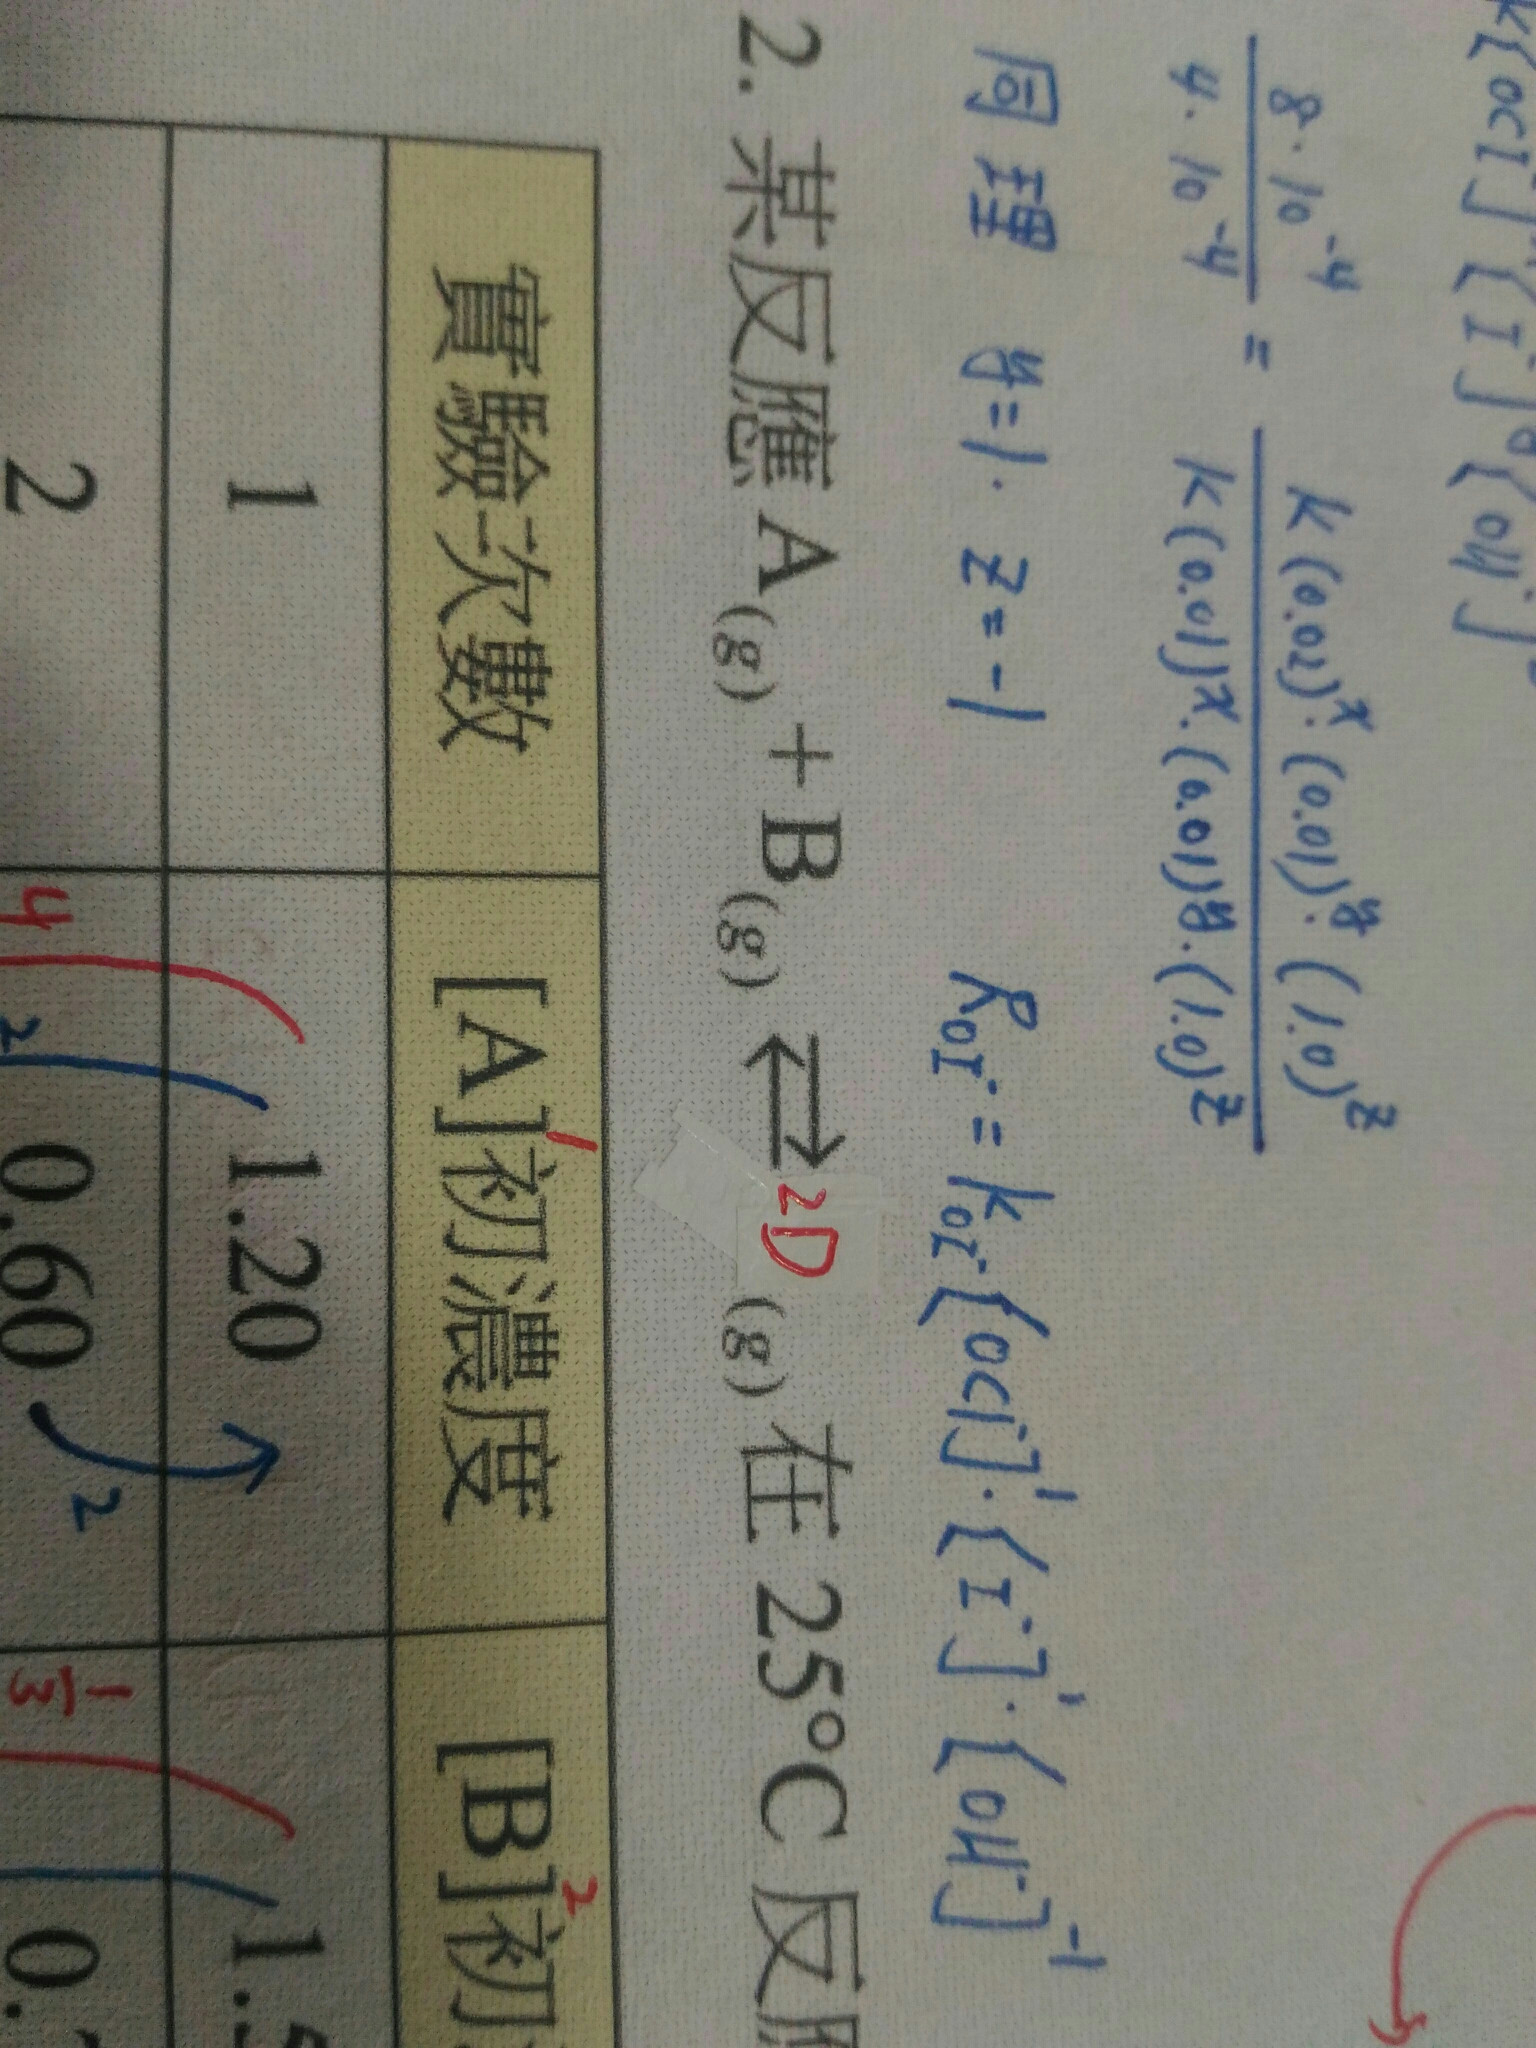 8·10⁻⁴ / 4·10⁻⁴ = k(0.02)ˣ·(0.01)ʸ·(1.0)ᶻ / k(0.01)ˣ·(0.01)ʸ·(1.0)ᶻ
同理 y=1. z=-1 R_OI⁻ = k_OI⁻[OCl⁻]¹·[I⁻]¹·[OH⁻]⁻¹
2. 某反應 A(g) + B(g) ⇌ 2D(g) 在 25°C 反
實驗次數 [A]¹初濃度 [B]²初
1 1.20
2 0.60
4 2 2 1/3